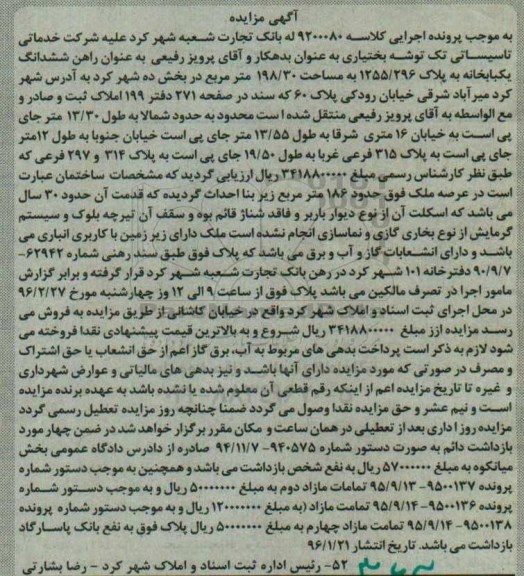 آگهی مزایده
به موجب پرونده اجرایی کلاسه ۹۲۰۰۰۸۰ له بانک تجارت شعبه شهر کرد علیه شرکت خدماتی
تاسیساتی تک توشه بختیاری به عنوان بدهکار و آقای پرویز رفیعی به عنوان راهن ششدانگ
یکبابخانه به پلاک ۱۲۵۵/۲۹۶ به مساحت ۱۹۸/۳۰ متر مربع در بخش ده شهر کرد به آدرس شهر
کرد میرآباد شرقی خیابان رودکی پلاک ۶۰ که سند در صفحه ۲۷۱ دفتر ۱۹۹ املاک ثبت و صادر و
مع الواسطه به آقای پرویز رفیعی منتقل شده است محدود به حدود شمالا به طول ۱۳/۳۰ متر جای
پی است به خیابان ۱۶ متری شرقا به طول ۱۳/۵۵ متر جای پی است خیابان جنوبا به طول ۱۲متر
جای پی است به پلاک ۳۱۵ فرعی غربا به طول ۱۹/۵۰ جای پی است به پلاک ۳۱۴ و ۲۹۷ فرعی که
طبق نظر کارشناس رسمی مبلغ ۳۴۱۸۸۰۰۰۰۰ ریال ارزیابی گردید که مشخصات ساختمان عبارت
است در عرصه ملک فوق حدود ۱۸۶ متر مربع زیر بنا احداث گردیده که قدمت آن حدود ۳۰ سال
می باشد که اسکلت آن از نوع دیوار باربر و فاقد شناژ قائم بوه و سقف آن تیرچه بلوک و سیستم
گرمایش از نوع بخاری گازی و نماسازی انجام نشده است ملک دارای زیر زمین با کاربری انباری می
باشد و دارای انشعابات گاز و آب و برق می باشد که پلاک فوق طبق سند رهنی شماره ۶۲۹۴۲-
۹۰/۹/۷ دفترخانه ۱۰۱ شهر کرد در رهن بانک تجارت شعبه شهر کرد قرار گرفته و برابر گزارش
مامور اجرا در تصرف مالکین می باشد پلاک فوق از ساعت ۹ الی ۱۲ وز چهارشنبه مورخ ۹۶/۲/۲۷
در محل اجرای ثبت اسناد و املاک شهر کرد واقع در خیابان کاشانی از طریق مزایده به فروش می
رسد مزایده ازز مبلغ ۳۴۱۸۸۰۰۰۰۰ ریال شروع و به بالاترین قیمت پیشنهادی نقدا فروخته می
شود لازم به ذکر است پرداخت بدهی های مربوط به آب، برق گاز اعم از حق انشعاب یا حق اشتراک
و مصرف در صورتی که مورد مزایده دارای آنها باشد و نیز بدهی های مالیاتی و عوارض شهرداری
و غیره تا تاریخ مزایده اعم از اینکه رقم قطعی آن معلوم شده یا نشده باشد به عهده برنده مزایده
است و نیم عشر و حق مزایده نقدا وصول می گردد ضمنا چنانچه روز مزایده تعطیل رسمی گردد
مزایده روز ا داری بعد از تعطیلی در همان ساعت و مکان مقرر برگزار خواهد شد در ضمن چهار مورد
بازداشت دائم به صورت دستور شماره ۹۴۰۵۷۵- ۹۴/۱۱/۷ صادره از دادرس دادگاه عمومی بخش
میانکوه به مبلغ ۵۷۰۰۰۰۰۰ ریال به نفع شخص بازداشت می باشد و همچنین به موجب دستور شماره
پرونده ۹۵۰۰۱۳۷- ۹۵/۹/۱۳ تمامات مازاد دوم به مبلغ ۵۰۰۰۰۰۰۰ ریال و به موجب دستور شماره
پرونده ۹۵۰۰۱۳۶- ۹۵/۹/۱۴ تمامات مازاد (به مبلغ ۱۲۰۰۰۰۰۰۰ ریال و به موجب دستور شماره پرونده
۹۵۰۰۱۳۸- ۹۵/۹/۱۴ تمامت مازاد چهارم به مبلغ ۵۰۰۰۰۰۰۰ ریال پلاک فوق به نفع بانک پاسارگاد
بازداشت می باشد. تاریخ انتشار ۹۶/۱/۲۱
۵۲- رئیس اداره ثبت اسناد و املاک شهر کرد - رضا بشارتی